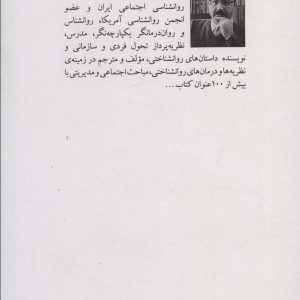 روانشناسی اجتماعی ایران و عضو
انجمن روانشناسی آمریکا، روانشناس
و روان‌درمانگر یکپارچه‌نگر، مدرس،
نظریه‌پرداز تحول فردی و سازمانی و
نویسنده داستان‌های روانشناختی، مؤلف و مترجم در زمینه‌ی
نظریه‌ها و درمان‌های روانشناختی، مباحث اجتماعی و مدیریتی با
بیش از ۱۰۰ عنوان کتاب ...